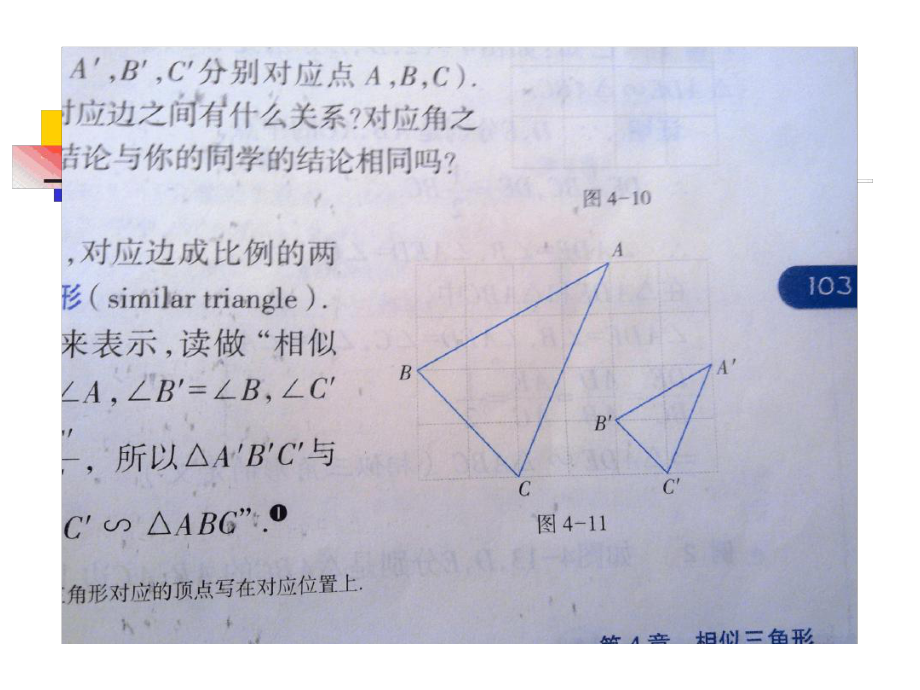 A′,B′,C′分别对应点 A,B,C).
对应边之间有什么关系?对应角之
结论与你的同学的结论相同吗?
图 4-10
,对应边成比例的两
形(similar triangle).
来表示,读做“相似
∠A,∠B′=∠B,∠C′
,所以△A′B′C′与
C′∽△ABC”.❶
角形对应的顶点写在对应位置上.
A
B
C
A′
B′
C′
图 4-11
103
第 4 章 相似三角形